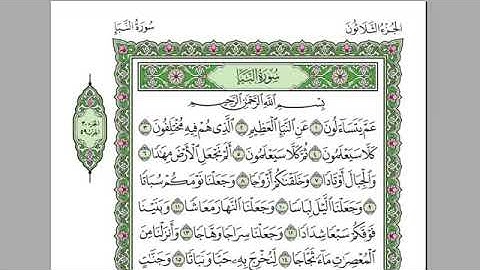 الجزء الثلاثون
سورة النبإ
سُورَةُ النَّبَإِ
بِسْمِ اللَّهِ الرَّحْمَٰنِ الرَّحِيمِ
عَمَّ يَتَسَاءَلُونَ ١ عَنِ النَّبَإِ الْعَظِيمِ ٢ الَّذِي هُمْ فِيهِ مُخْتَلِفُونَ ٣
كَلَّا سَيَعْلَمُونَ ٤ ثُمَّ كَلَّا سَيَعْلَمُونَ ٥ أَلَمْ نَجْعَلِ الْأَرْضَ مِهَٰدًا ٦
وَالْجِبَالَ أَوْتَادًا ٧ وَخَلَقْنَٰكُمْ أَزْوَٰجًا ٨ وَجَعَلْنَا نَوْمَكُمْ سُبَاتًا
٩ وَجَعَلْنَا الَّيْلَ لِبَاسًا ١٠ وَجَعَلْنَا النَّهَارَ مَعَاشًا ١١ وَبَنَيْنَا
فَوْقَكُمْ سَبْعًا شِدَادًا ١٢ وَجَعَلْنَا سِرَاجًا وَهَّاجًا ١٣ وَأَنزَلْنَا مِنَ
الْمُعْصِرَٰتِ مَاءً ثَجَّاجًا ١٤ لِّنُخْرِجَ بِهِ حَبًّا وَنَبَاتًا ١٥ وَجَنَّٰتٍ